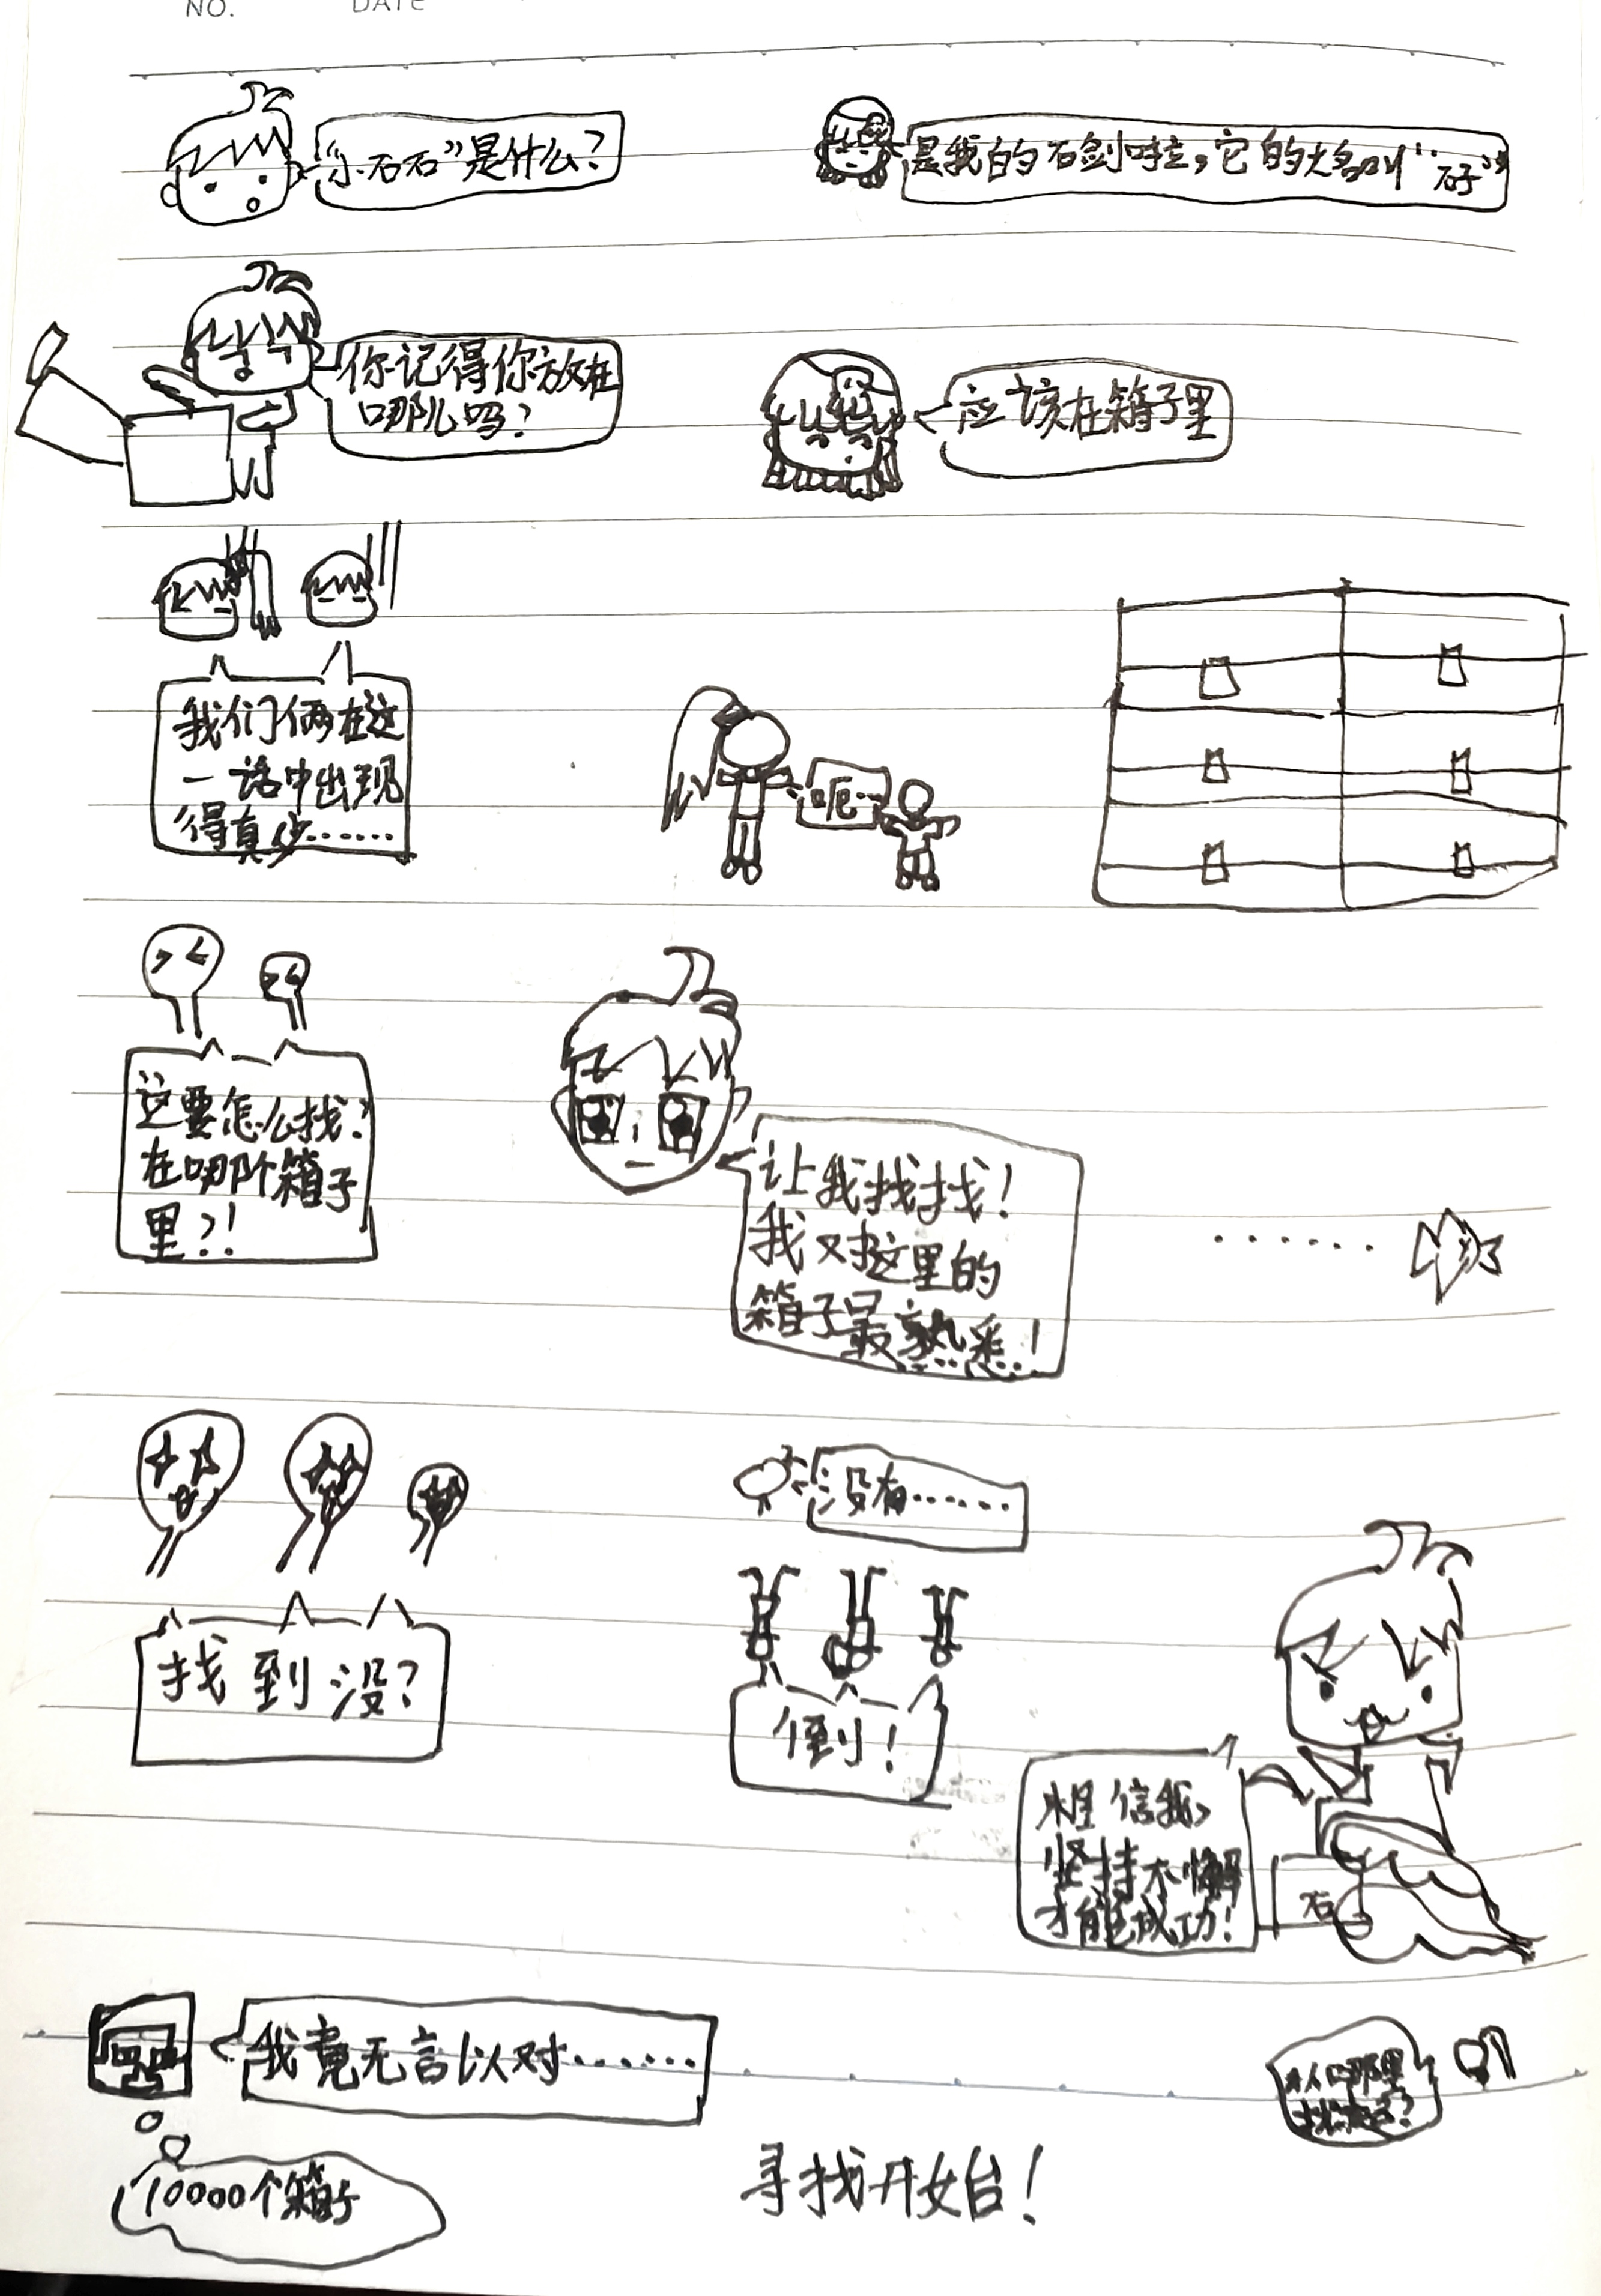 NO.
DATE
“小石石”是什么？
是我的石剑啦，它的大名叫“石子”
你记得你放在
哪儿吗？
应该在箱子里
我们俩在这
一话中出现
得真少……
呃…
这要怎么找？
在哪个箱子
里？！
让我找找！
我对这里的
箱子最熟悉！
……
找到没？
没有……
倒！
相信我，
坚持不懈
才能成功！
石
我竟无言以对……
从哪里
找起？
10000个箱子
寻找开始！